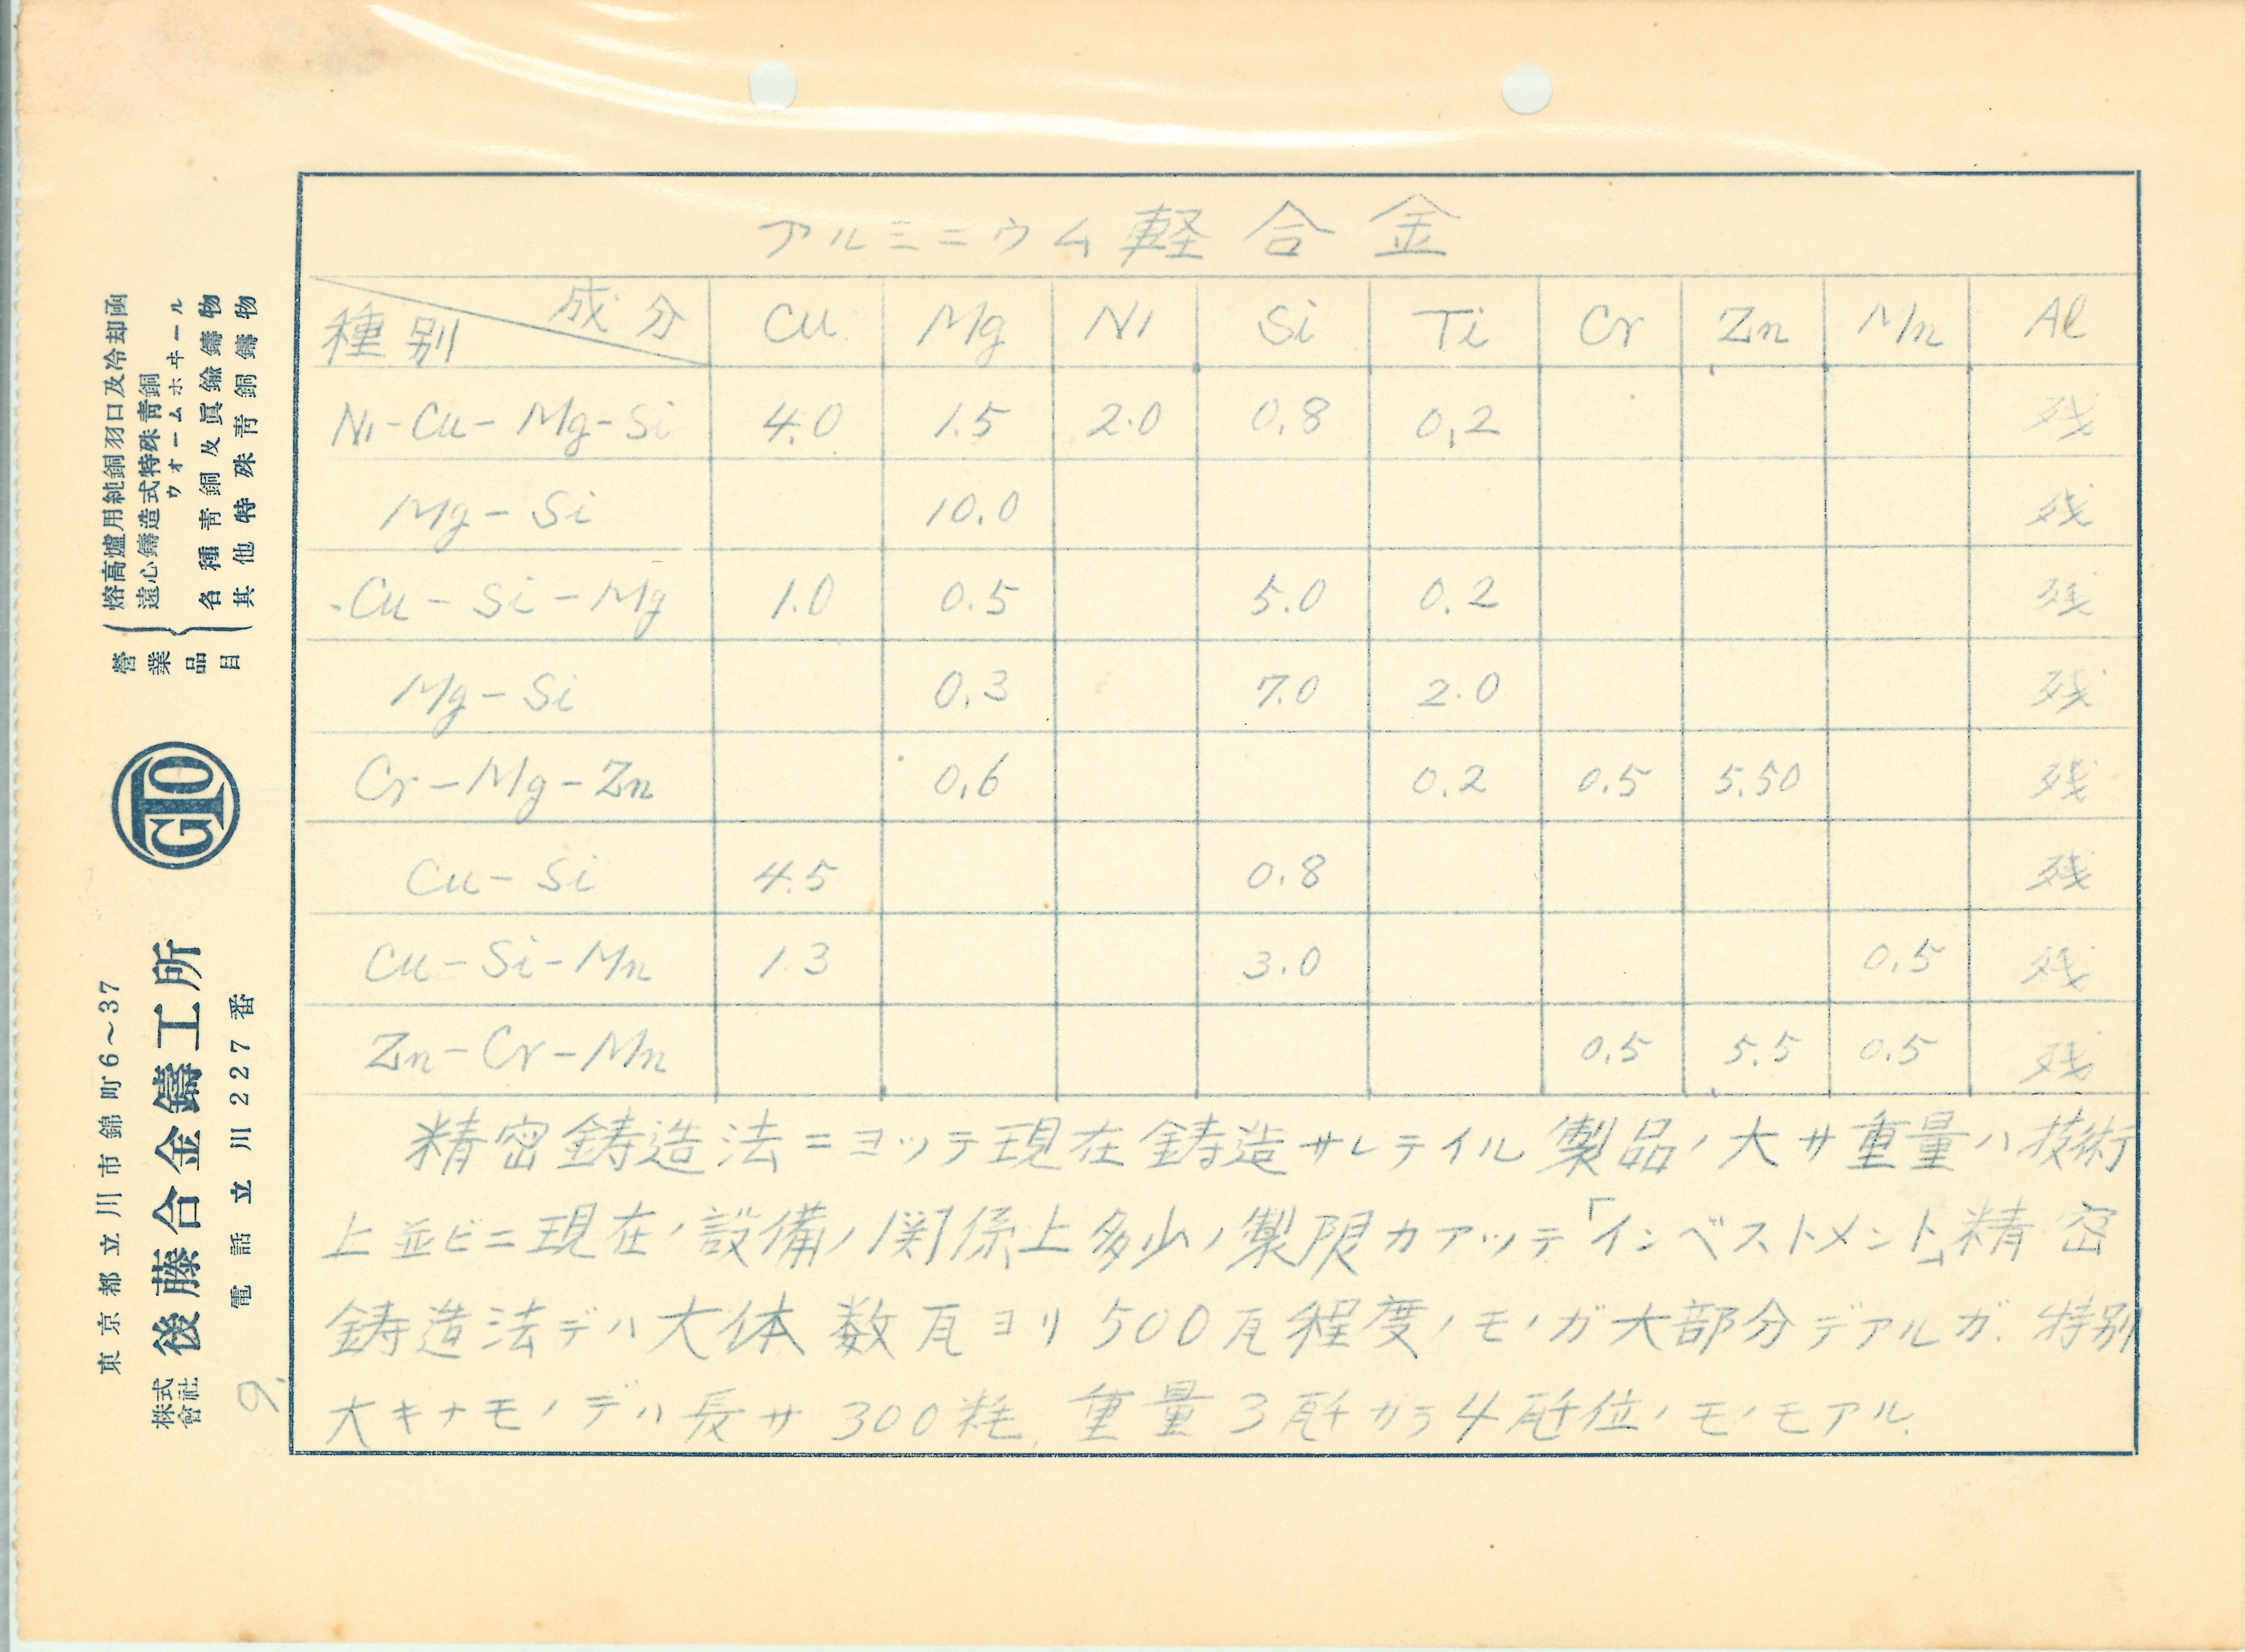 アルミニウム軽合金
種別 成分 Cu Mg Ni Si Ti Cr Zn Mn Al
Ni-Cu-Mg-Si 4.0 1.5 2.0 0.8 0.2 残
Mg-Si 10.0 残
Cu-Si-Mg 1.0 0.5 5.0 0.2 残
Mg-Si 0.3 7.0 2.0 残
Cr-Mg-Zn 0.6 0.2 0.5 5.50 残
Cu-Si 4.5 0.8 残
Cu-Si-Mn 1.3 3.0 0.5 残
Zn-Cr-Mn 0.5 5.5 0.5 残
精密鋳造法ニヨッテ現在鋳造サレテイル製品ノ大サ重量ハ技術
上並ビニ現在ノ設備ノ関係上多少ノ製限カアッテ「インベストメント」精密
鋳造法デハ大体数瓦ヨリ500瓦程度ノモノガ大部分デアルガ.特別
大キナモノデハ長サ300粍.重量3瓩カラ4瓩位ノモノモアル.
9.
營業品目
熔高爐用純銅羽口及冷却函
遠心鑄造式特殊青銅
ウオームホヰール
各種青銅及眞鍮鑄物
其他特殊青銅鑄物
GTO
東京都立川市錦町6～37
株式會社 後藤合金鑄工所
電話立川227番